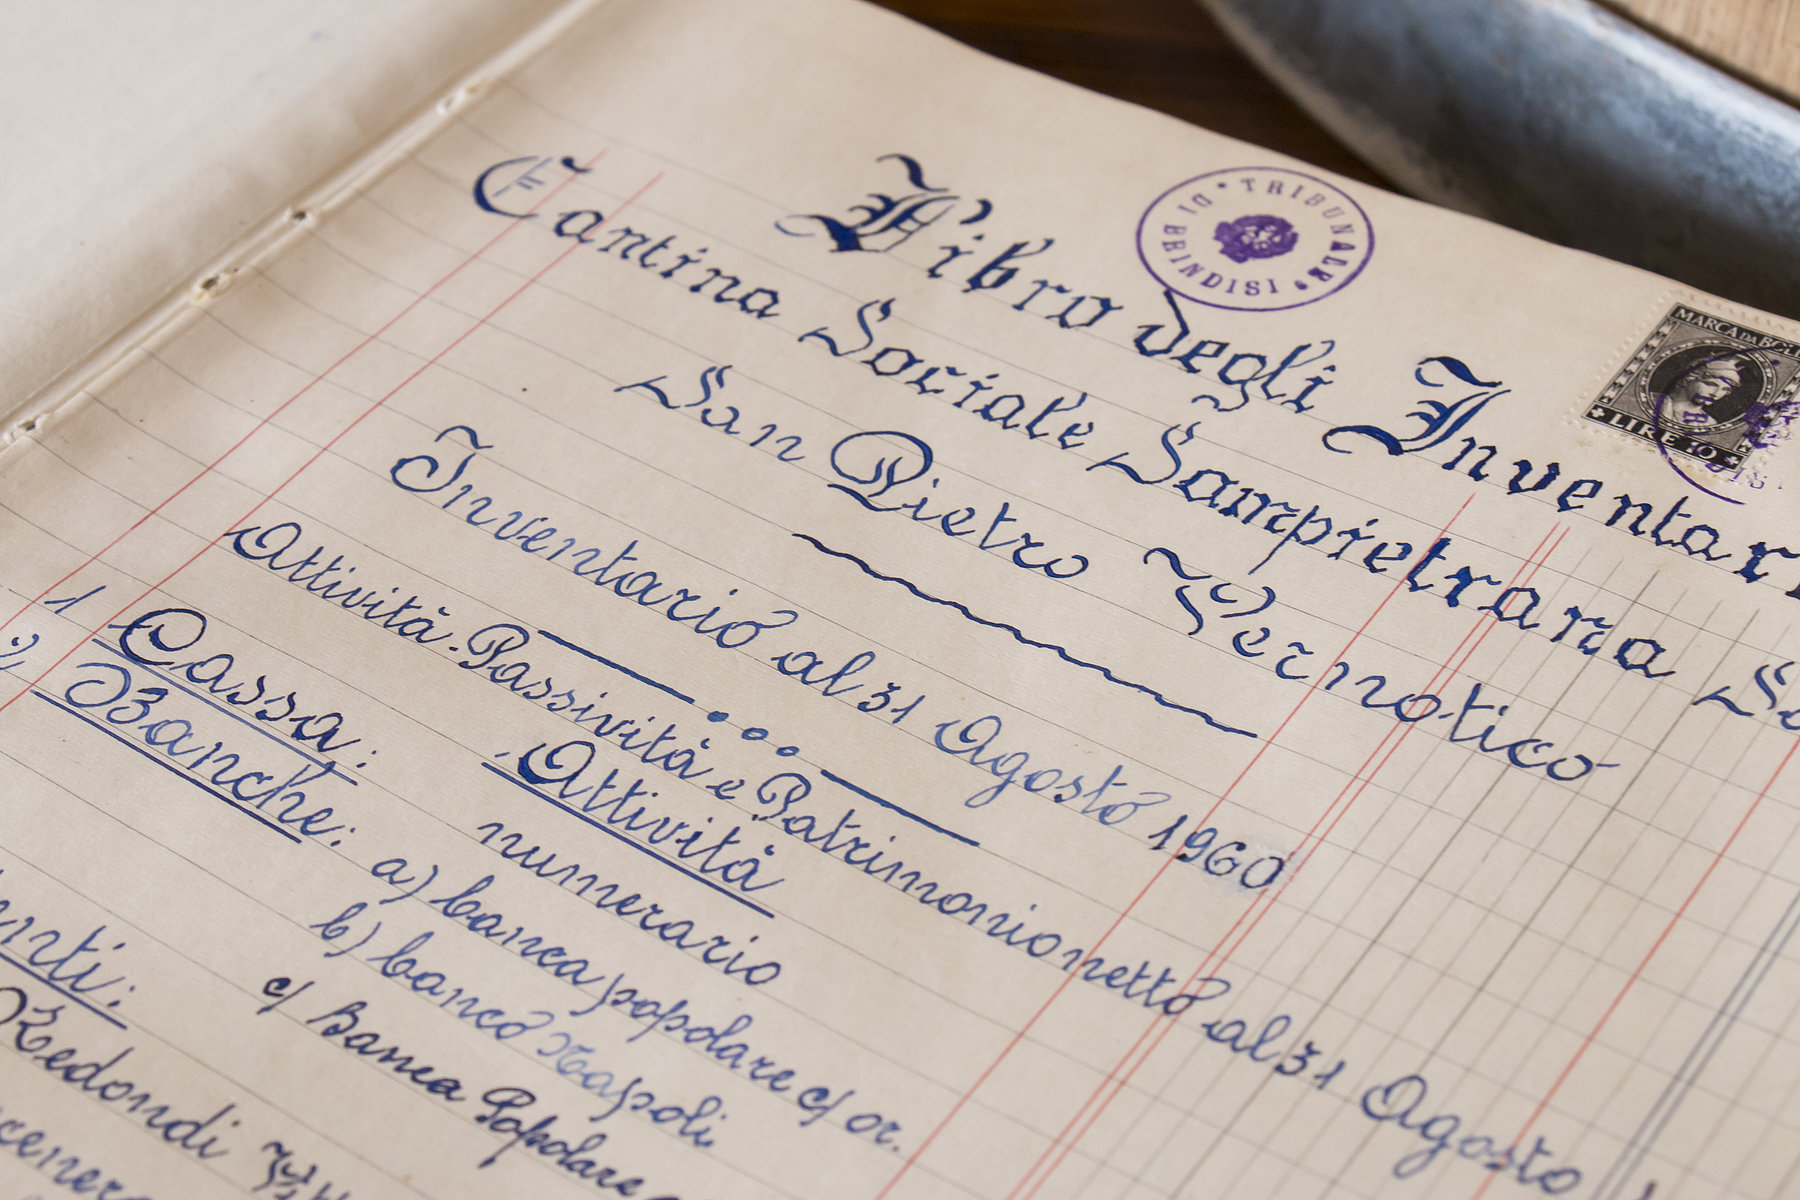 Libro degli Inventari
Cantina Sociale Sampietrana
San Pietro Vernotico
Inventario al 31 Agosto 1960
Attività - Passività e Patrimonio netto al 31 Agosto
Attività
1 Cassa: numerario
2 Banche: a) banca popolare c/ or.
b) banco Napoli
c/ Banca Popolare
Redondi
TRIBUNALE DI BRINDISI
MARCA DA BOLLO
LIRE 10